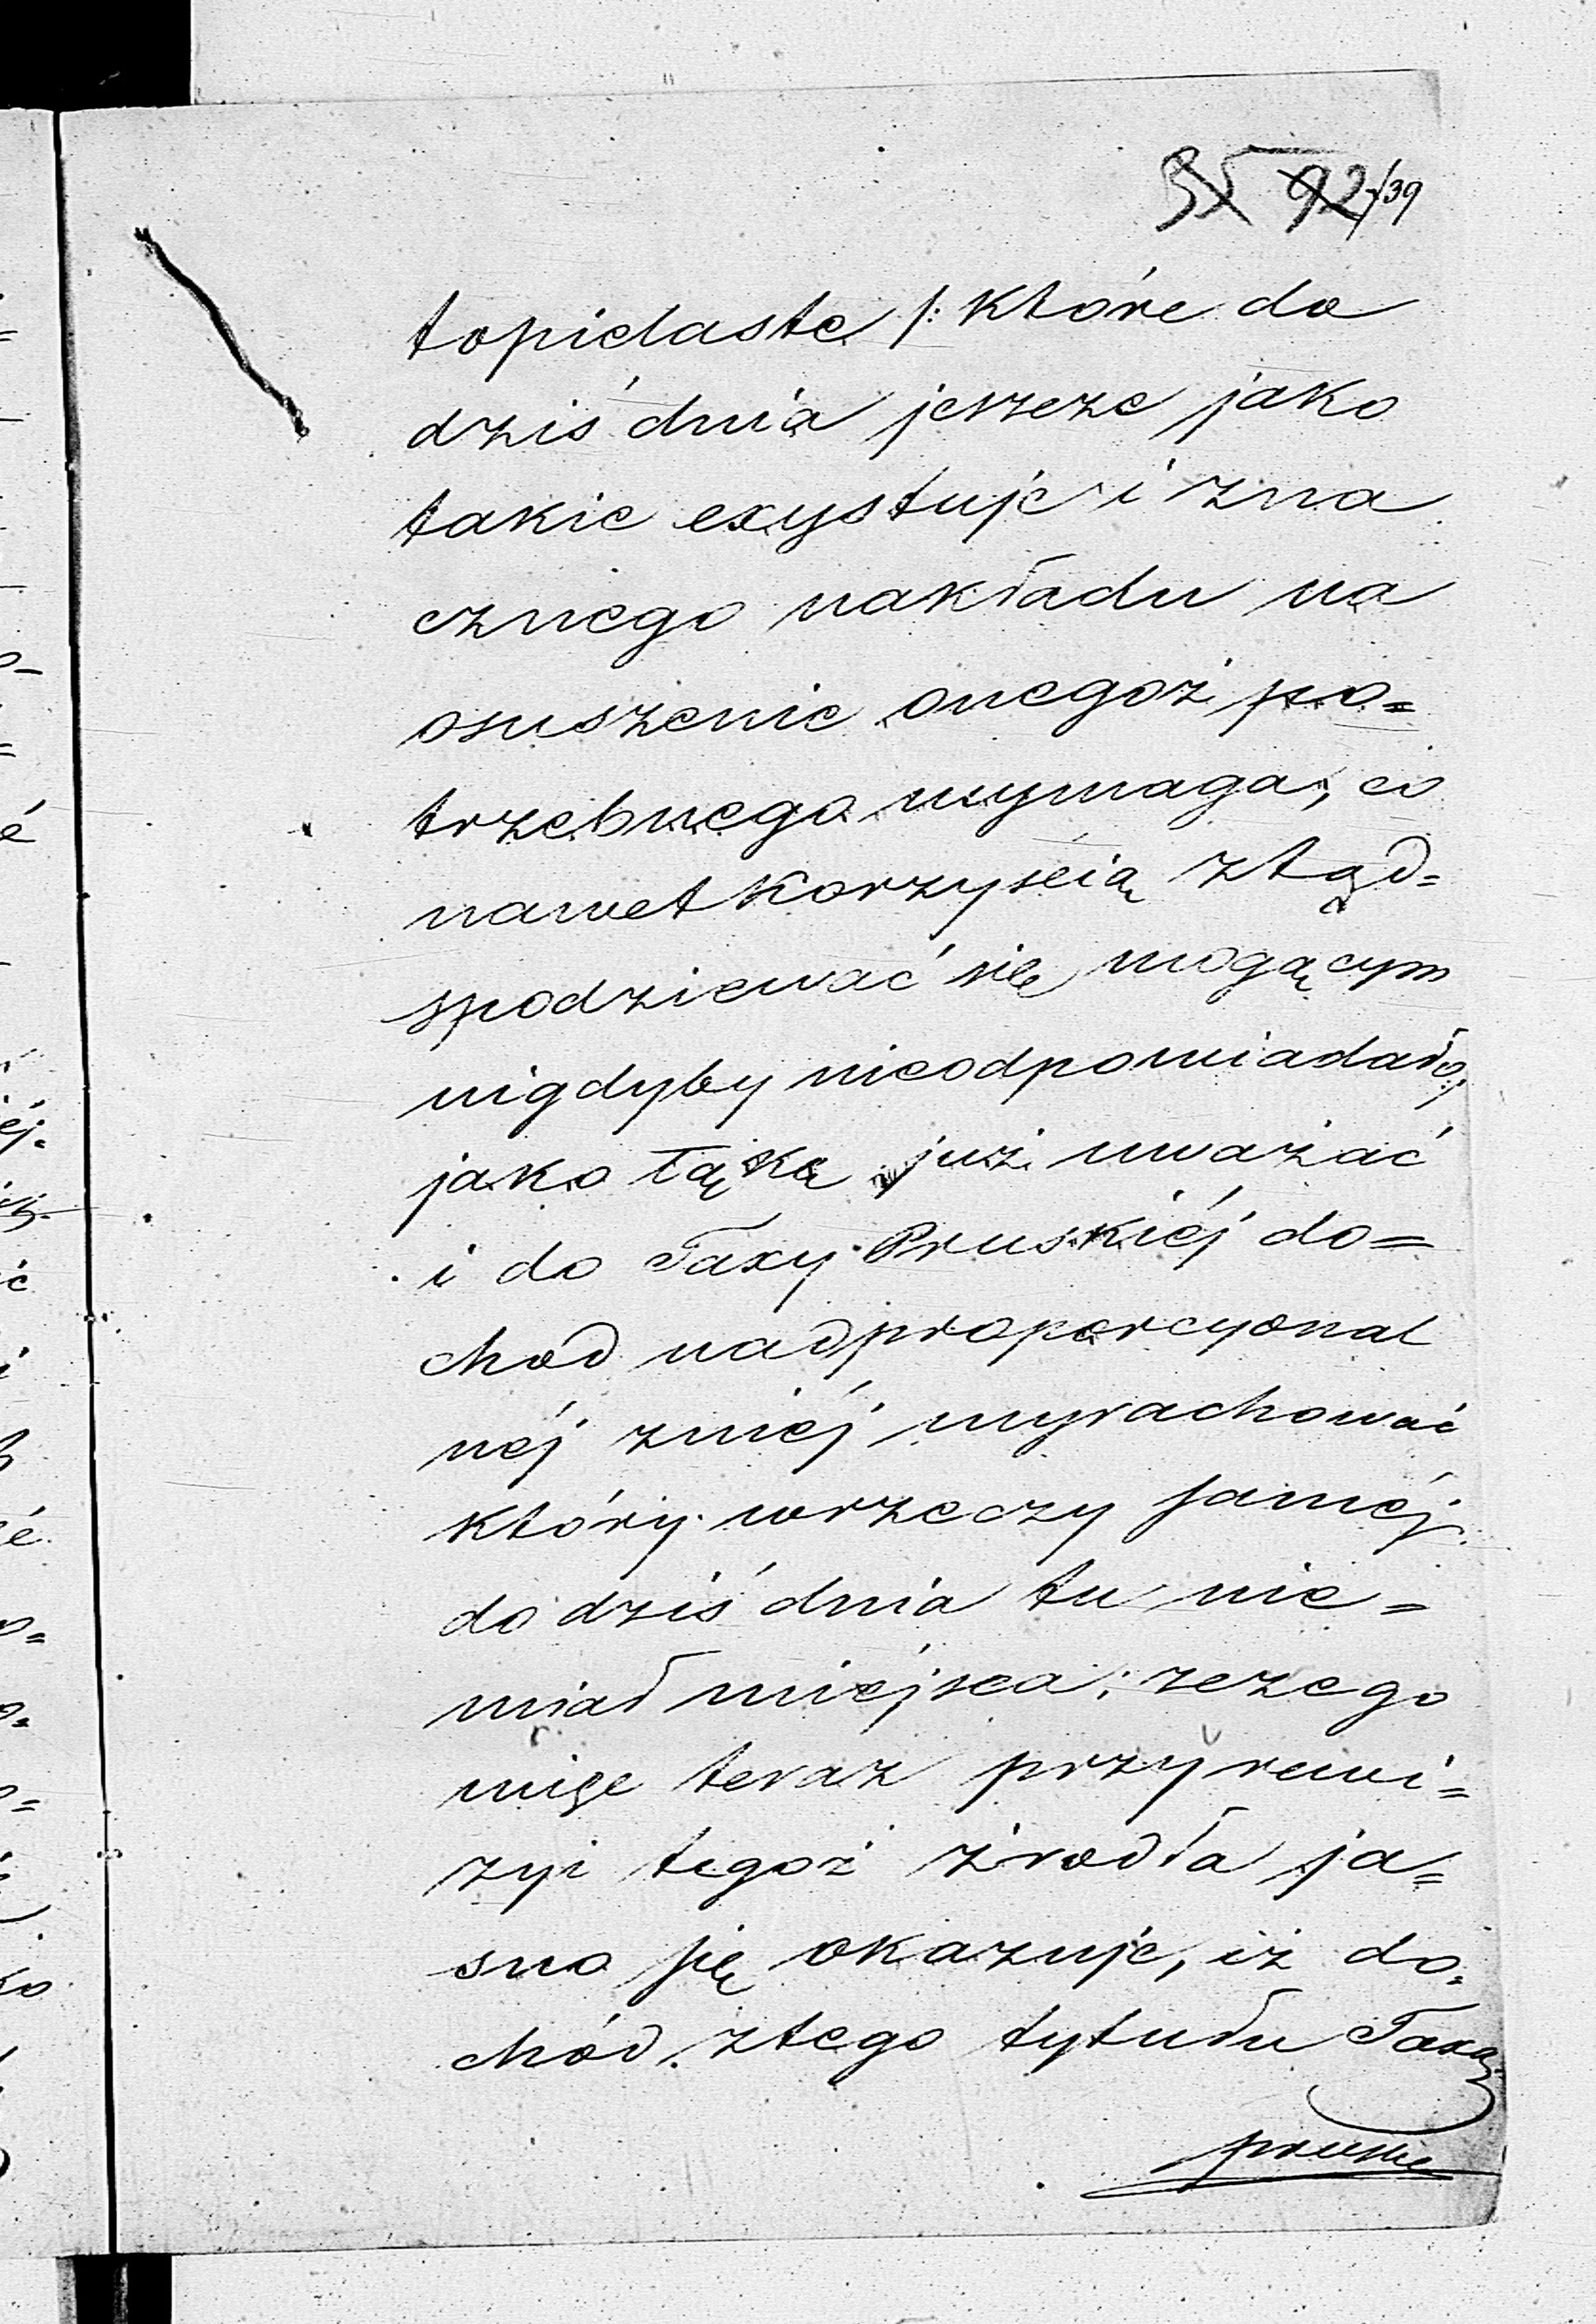 35 92/39
topielaste /: które do
dziś dnia jeszcze jako
takie exystuje i zna
cznego nakładu na
osuszenie onegoż po=
trzebnego wymaga, co
nawet korzyścią ztąd=
spodziewać się mogącym
nigdyby nieodpowiadało,
jako łąkę już uważać
i do Taxy Pruskiéj do=
chod nadproporcyonal
néj zniéj wyrachować
który wrzeczy saméj
do dziś dnia tu nie=
miał miéjsca; zczego
więc teraz przy rewi=
zyi tegoż źrodła ja=
sno się okazuje, iż do=
chód ztego tytułu Taxą
pruską